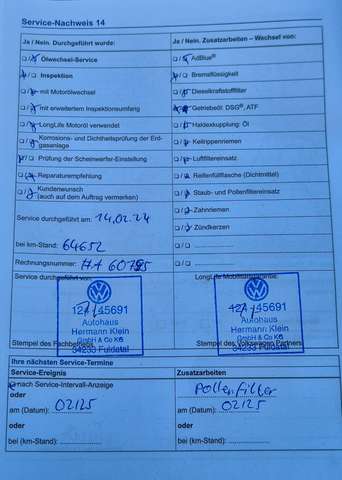 Service-Nachweis 14
Ja / Nein. Durchgeführt wurde:
Ölwechsel-Service
Inspektion
mit Motorölwechsel
mit erweitertem Inspektionsumfang
LongLife Motoröl verwendet
Korrosions- und Dichtheitsprüfung der Erdgasanlage
Prüfung der Scheinwerfer-Einstellung
Reparaturempfehlung
Kundenwunsch
(auch auf dem Auftrag vermerken)
Service durchgeführt am: 14.02.24
bei km-Stand: 64652
Rechnungsnummer:
Service durchgeführt von:
45691
Autohaus
Hermann Klein
GmbH & Co KG
34233 Fuldatal
Stempel des Fachbetriebs
Ja / Nein. Zusatzarbeiten – Wechsel von:
AdBlue®
Bremsflüssigkeit
Dieselkraftstofffilter
Getriebeöl: DSG®, ATF
Haldexkupplung: Öl
Keilrippenriemen
Luftfiltereinsatz
Reifenfüllflasche (Dichtmittel)
Staub- und Pollenfiltereinsatz
Zahnriemen
Zündkerzen
LongLife Mobilitätsgarantie:
45691
Autohaus
Hermann Klein
GmbH & Co KG
34233 Fuldatal
Stempel des Volkswagen Partners
Ihre nächsten Service-Termine
Service-Ereignis
nach Service-Intervall-Anzeige
oder
am (Datum): 02/25
oder
bei (km-Stand):
Zusatzarbeiten
Pollenfilter
am (Datum): 02/25
oder
bei (km-Stand):